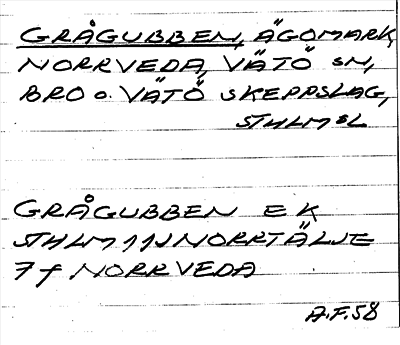 GRÅGUBBEN, ÄGOMARK,
NORRVEDA, VÄTÖ SN,
BRO o. VÄTÖ SKEPPSLAG,
STHLM SL
GRÅGUBBEN EK
STHLM 11J NORRTÄLJE
7f NORRVEDA
A.F. 58